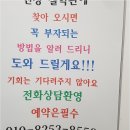 찾아 오시면
꼭 부자되는
방법을 알려 드리니
도와 드릴게요!!!
기회는 기다려주지 않아요
전화상담환영
예약은필수